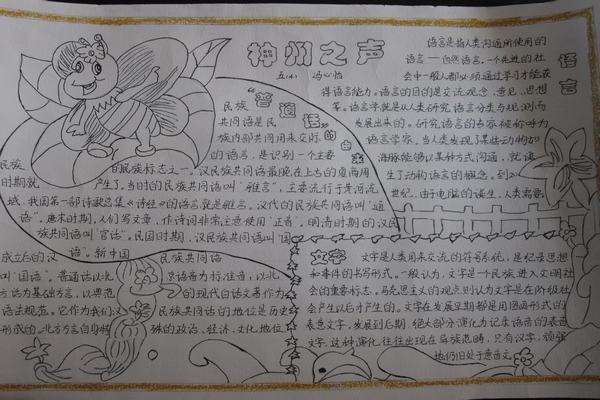 神州之声
五(4) 冯心怡
"普通话"的由来
民族
共同语是民
族内部共同用来交际
的语言,是识别一个主要
民族 的民族标志之一。汉民族共同语最晚在上古的夏商周
时期就 产生了。当时的民族共同语叫"雅言",主要流行于黄河流
域,我国第一部诗歌总集《诗经》的语言就是雅言。汉代的民族共同语叫"通
语"。唐宋时期,人们写文章、作诗词非常注意使用"正音"。明清时期的汉民
族共同语叫"官话"。民国时期,汉民族共同语叫"国
语"。新中国 民族共同语
成立后的汉
叫"国语"。普通话以北 京语音为标准音,以北
方话为基础方言,以典范 的现代白话文著作为
语法规范。它作为我们汉 民族共同语的地位是历史
形成的。北方方言自身特 殊的政治、经济、文化地位
语言
语言是指人类沟通所使用的
语言——自然语言,一个先进的社
会中一般人都必须通过学习才能获
得语言能力。语言的目的是交流观念、意见、思想
等。语言学就是从人类研究语言分类与规则而
发展出来的。研究语言的专家被称呼为
语言学家。当人类发现了某些动物如
海豚能够以某种方式沟通,就诞
生了动物语言的概念。到20
世纪,由于电脑的诞生,人类需要
文字
文字是人类用来交流的符号系统,是纪录思想
和事件的书写形式。一般认为,文字是一个民族进入文明社
会的重要标志。马克思主义的观点则认为文字是在阶级社
会产生以后才产生的。文字在发展早期都是用图画形式的
表意文字,发展到后期,绝大部分演化为记录语音的表音
文字,这种演化往往出现在异族范畴,只有汉字,顽强
地仍旧处于意音文